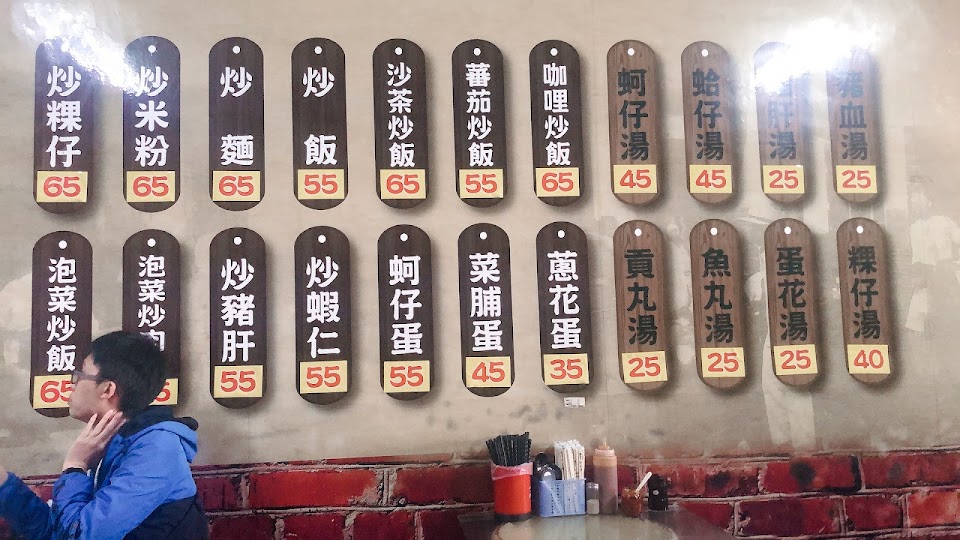 炒粿仔 65
炒米粉 65
炒麵 65
炒飯 55
沙茶炒飯 65
蕃茄炒飯 55
咖哩炒飯 65
蚵仔湯 45
蛤仔湯 45
肝湯 25
豬血湯 25
泡菜炒飯 65
泡菜炒肉 5
炒豬肝 55
炒蝦仁 55
蚵仔蛋 55
菜脯蛋 45
蔥花蛋 35
貢丸湯 25
魚丸湯 25
蛋花湯 25
粿仔湯 40